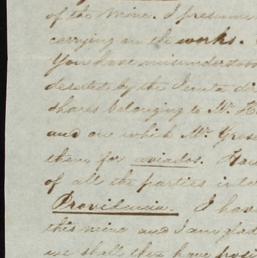 of the Mine. I presume
carrying on the works.
You have misunderstood
deserted by the
shares belonging to Mr. H
and on which Mr.
them for aviados. Hav
of all the parties
Providencia. I have
this mine and I am glad
we shall then have